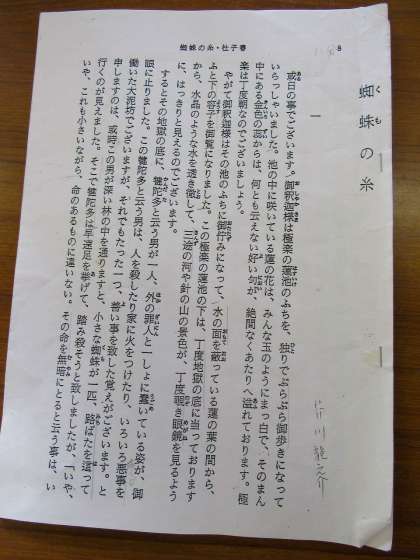 蜘蛛の糸・杜子春
8
蜘蛛の糸
芥川龍之介
一
或日の事でございます。御釈迦様は極楽の蓮池のふちを、独りでぶらぶら御歩きになって
いらっしゃいました。池の中に咲いている蓮の花は、みんな玉のようにまっ白で、そのまん
中にある金色の蕊からは、何とも云えない好い匂が、絶間なくあたりへ溢れております。極
楽は丁度朝なのでございましょう。
やがて御釈迦様はその池のふちに御佇みになって、水の面を蔽っている蓮の葉の間から、
ふと下の容子を御覧になりました。この極楽の蓮池の下は、丁度地獄の底に当っております
から、水晶のような水を透き徹して、三途の河や針の山の景色が、丁度覗き眼鏡を見るよう
に、はっきりと見えるのでございます。
するとその地獄の底に、犍陀多と云う男が一人、外の罪人と一しょに蠢いている姿が、御
眼に止りました。この犍陀多と云う男は、人を殺したり家に火をつけたり、いろいろ悪事を
働いた大泥坊でございますが、それでもたった一つ、善い事を致した覚えがございます。と
申しますのは、或時この男が深い林の中を通りますと、小さな蜘蛛が一匹、路ばたを這って
行くのが見えました。そこで犍陀多は早速足を挙げて、踏み殺そうと致しましたが、「いや、
いや、これも小さいながら、命のあるものに違いない。その命を無暗にとると云う事は、い